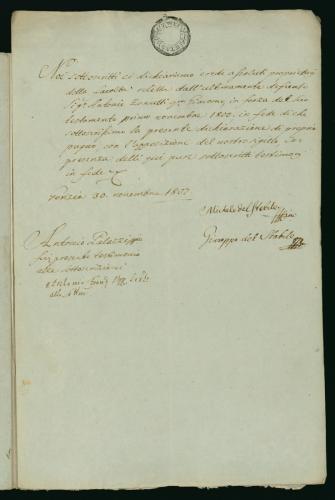 Noi sottoscritti ci dichiariamo eredi assoluti proprietarj
della facoltà relitta dall'ultimamente defunto
Sigr Antonio Zannelli qm Simone, in forza del suo
testamento primo novembre 1802, in fede di che
sottoscrissimo la presente dichiarazione di proprio
pugno con l'apposizione del nostro
presenza delli qui pure sottoscritti testimonj
in fede
Venezia 30. novembre 1802
Michele del Stabile
Giuseppe del Stabile
Antonio Palazzi
fui presente testimonio
alla sottoscrizione